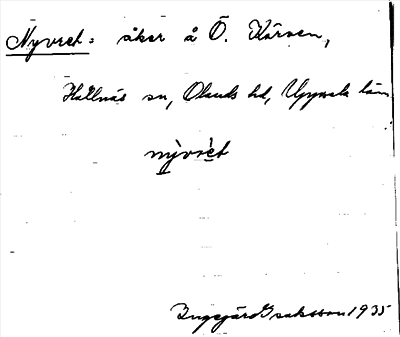 Nyvret: åker å Ö. Kärven,
Hållnäs sn, Olands hd, Uppsala län
nỳvrèt
Ingegärd Isaksson 1935